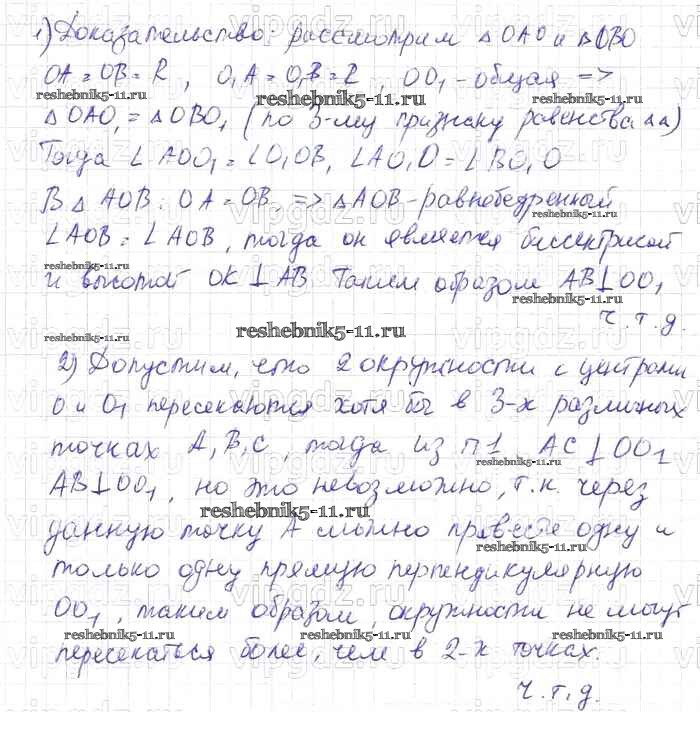 1) Доказательство: рассмотрим △ OAO и △OBO
OA = OB = R, O₁A = O₁B = R, OO₁ - общая =>
reshebnik5-11.ru reshebnik5-11.ru reshebnik5-11.ru
△OAO₁ = △OBO₁ (по 3-му признаку равенства △△)
Тогда ∠ AOO₁ = ∠O₁OB, ∠AO₁O = ∠BO₁O
reshebnik5-11.ru reshebnik5-11.ru
В △ AOB: OA = OB, => △AOB - равнобедренный
∠AOB = ∠AOB, тогда он является биссектрисой
reshebnik5-11.ru
и высотой OK ⊥ AB. Таким образом AB⊥OO₁
reshebnik5-11.ru
ч.т.д.
reshebnik5-11.ru
2) Допустим, что 2 окружности с центрами
O и O₁ пересекаются хотя бы в 3-х различных
точках A, B, C, тогда из п1 AC ⊥ OO₁
reshebnik5-11.ru
AB⊥OO₁, но это невозможно, т.к. через
reshebnik5-11.ru
данную точку A можно провести одну и
reshebnik5-11.ru
только одну прямую перпендикулярную
OO₁, таким образом, окружности не могут
reshebnik5-11.ru reshebnik5-11.ru
пересекаться более, чем в 2-х точках.
ч.т.д.